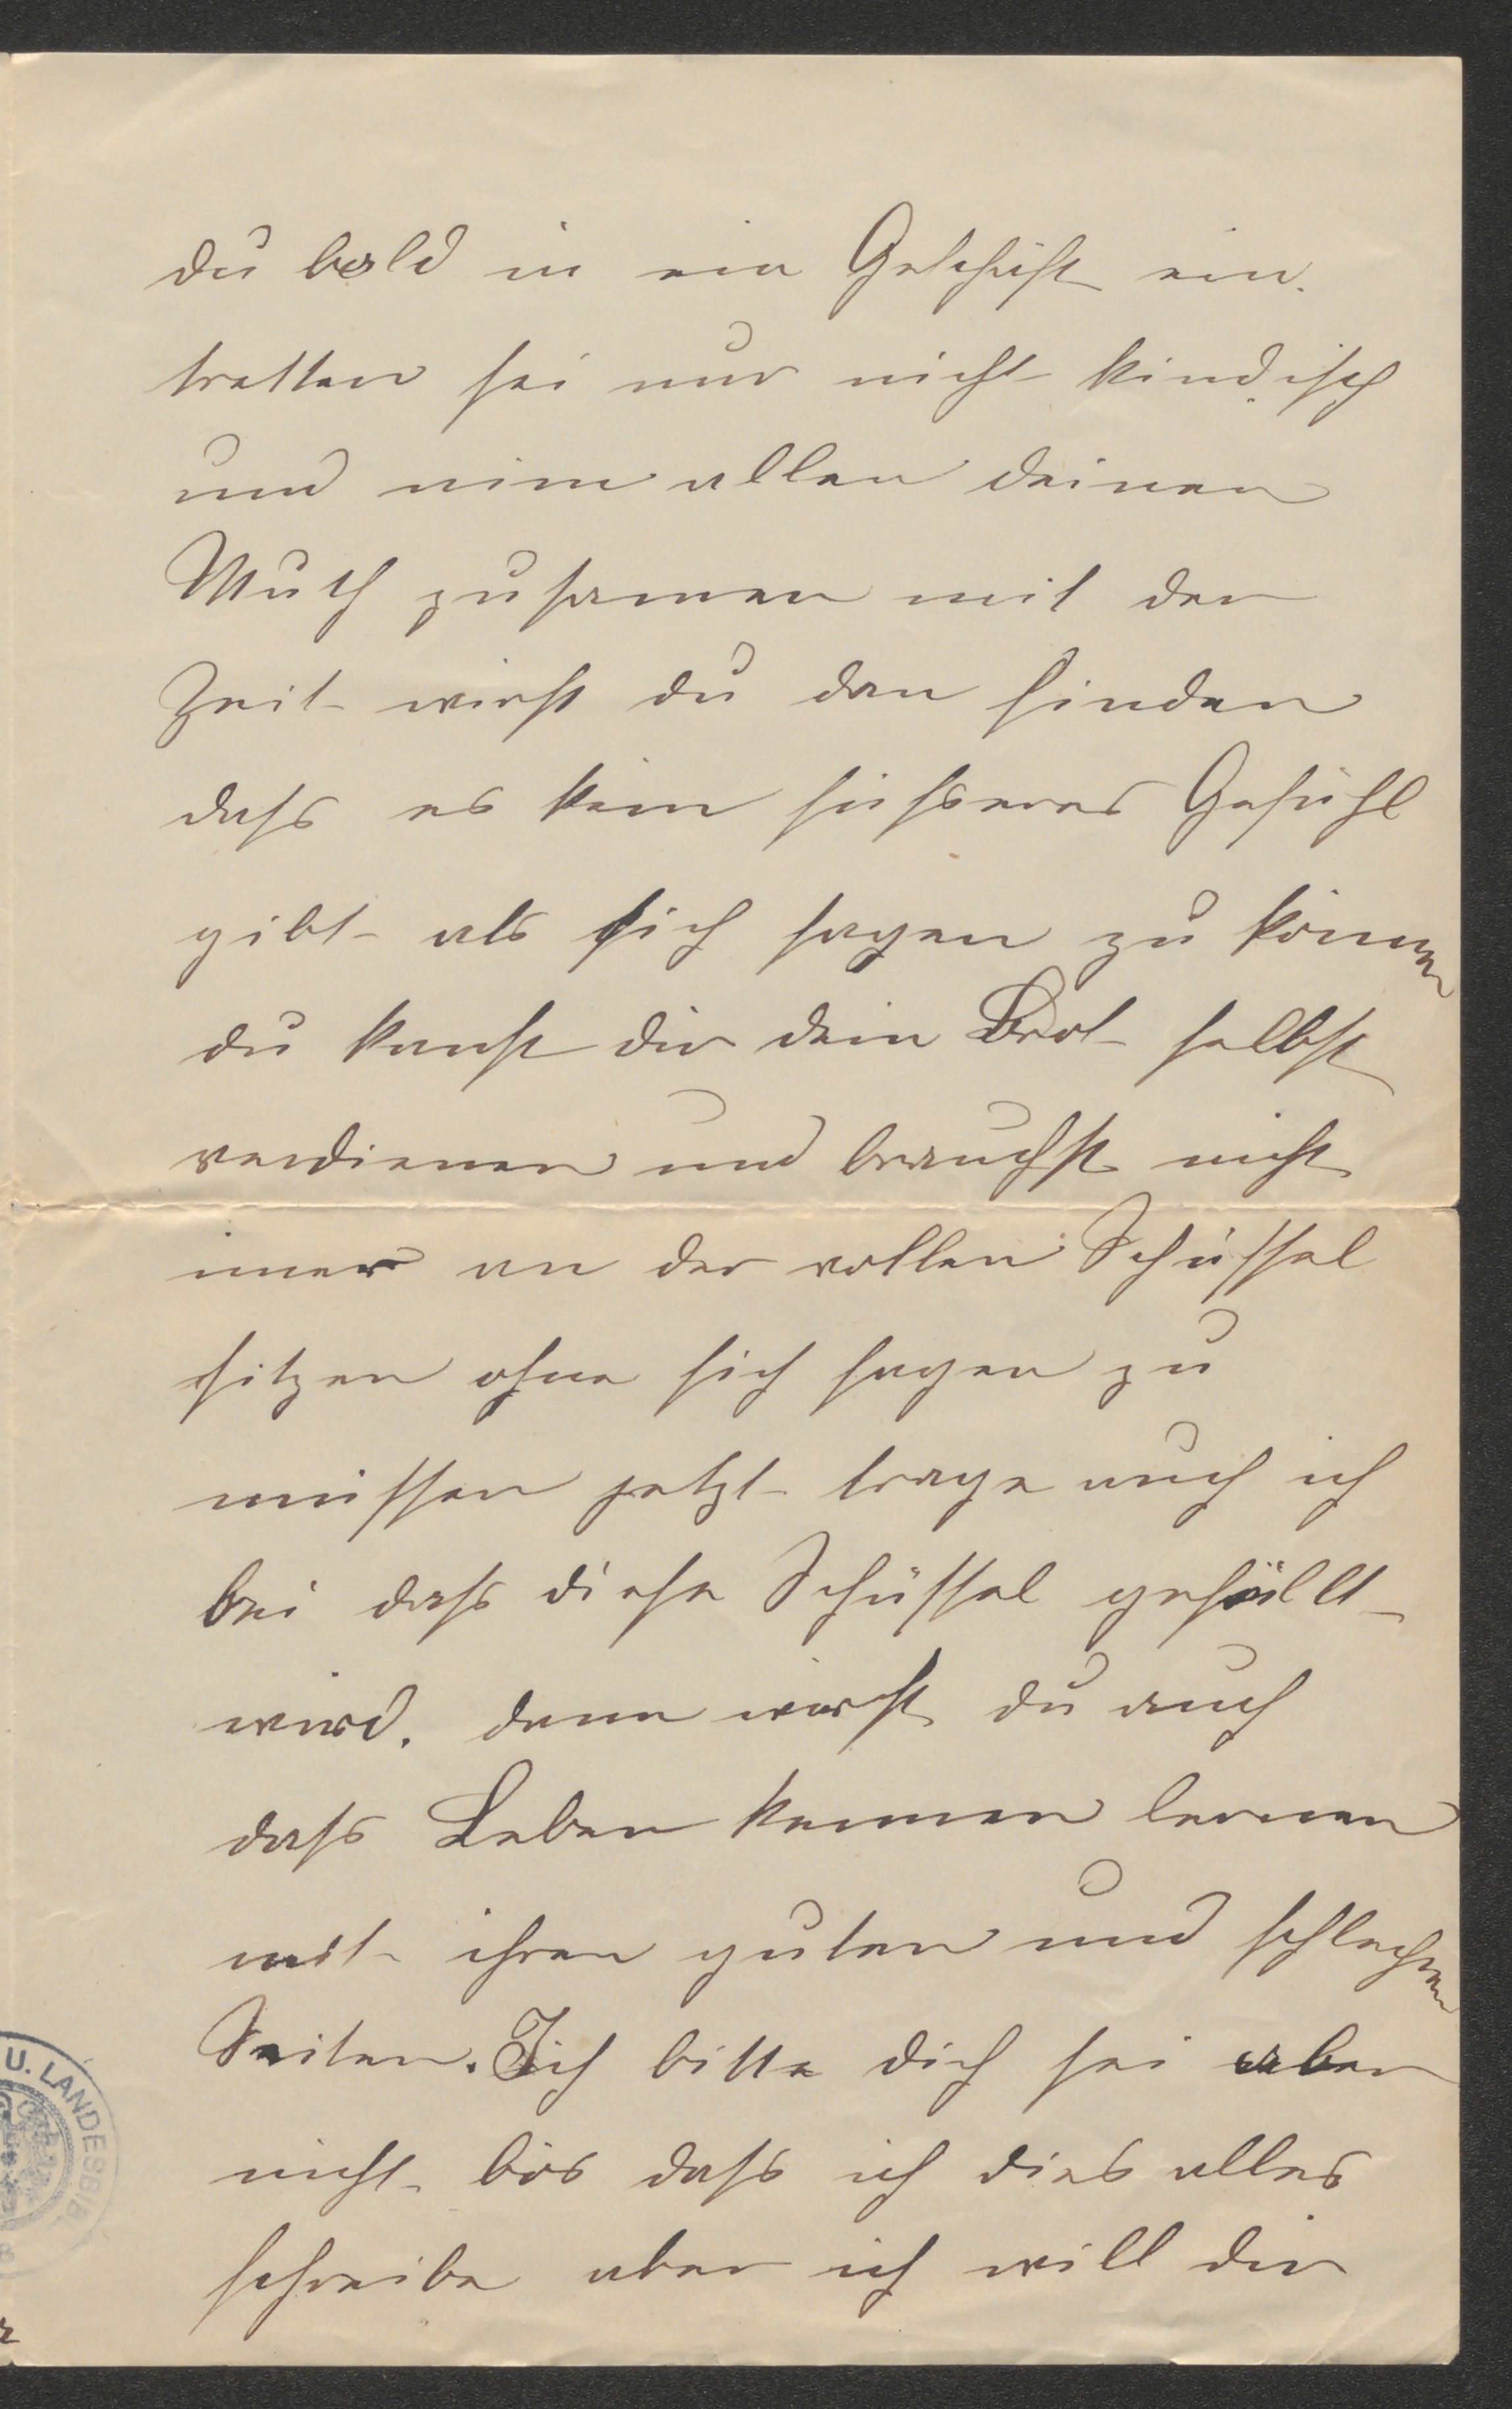 du bald in ein Geschäft ein.
tretten sei nur nicht kindisch
und nim allen deinen
Muth zusamen mit der
Zeit wirst du dan finden
dass es kein süsseres Gefühl
gibt als sich sagen zu können
du kanst dir dein Brot selbst
verdienen und brauchst nicht
imer an der vollen Schüssel
sitzen ohne sich sagen zu
müssen jetzt trage auch ich
bei dass diese Schüssel gefüllt
wird. dann wirst du auch
dass Leben kennen lernen
mit ihren guten und schlechten
Seiten. Ich bitte dich sei aber
nicht bös dass ich dies alles
schreibe aber ich will dir
U. LANDESBIB